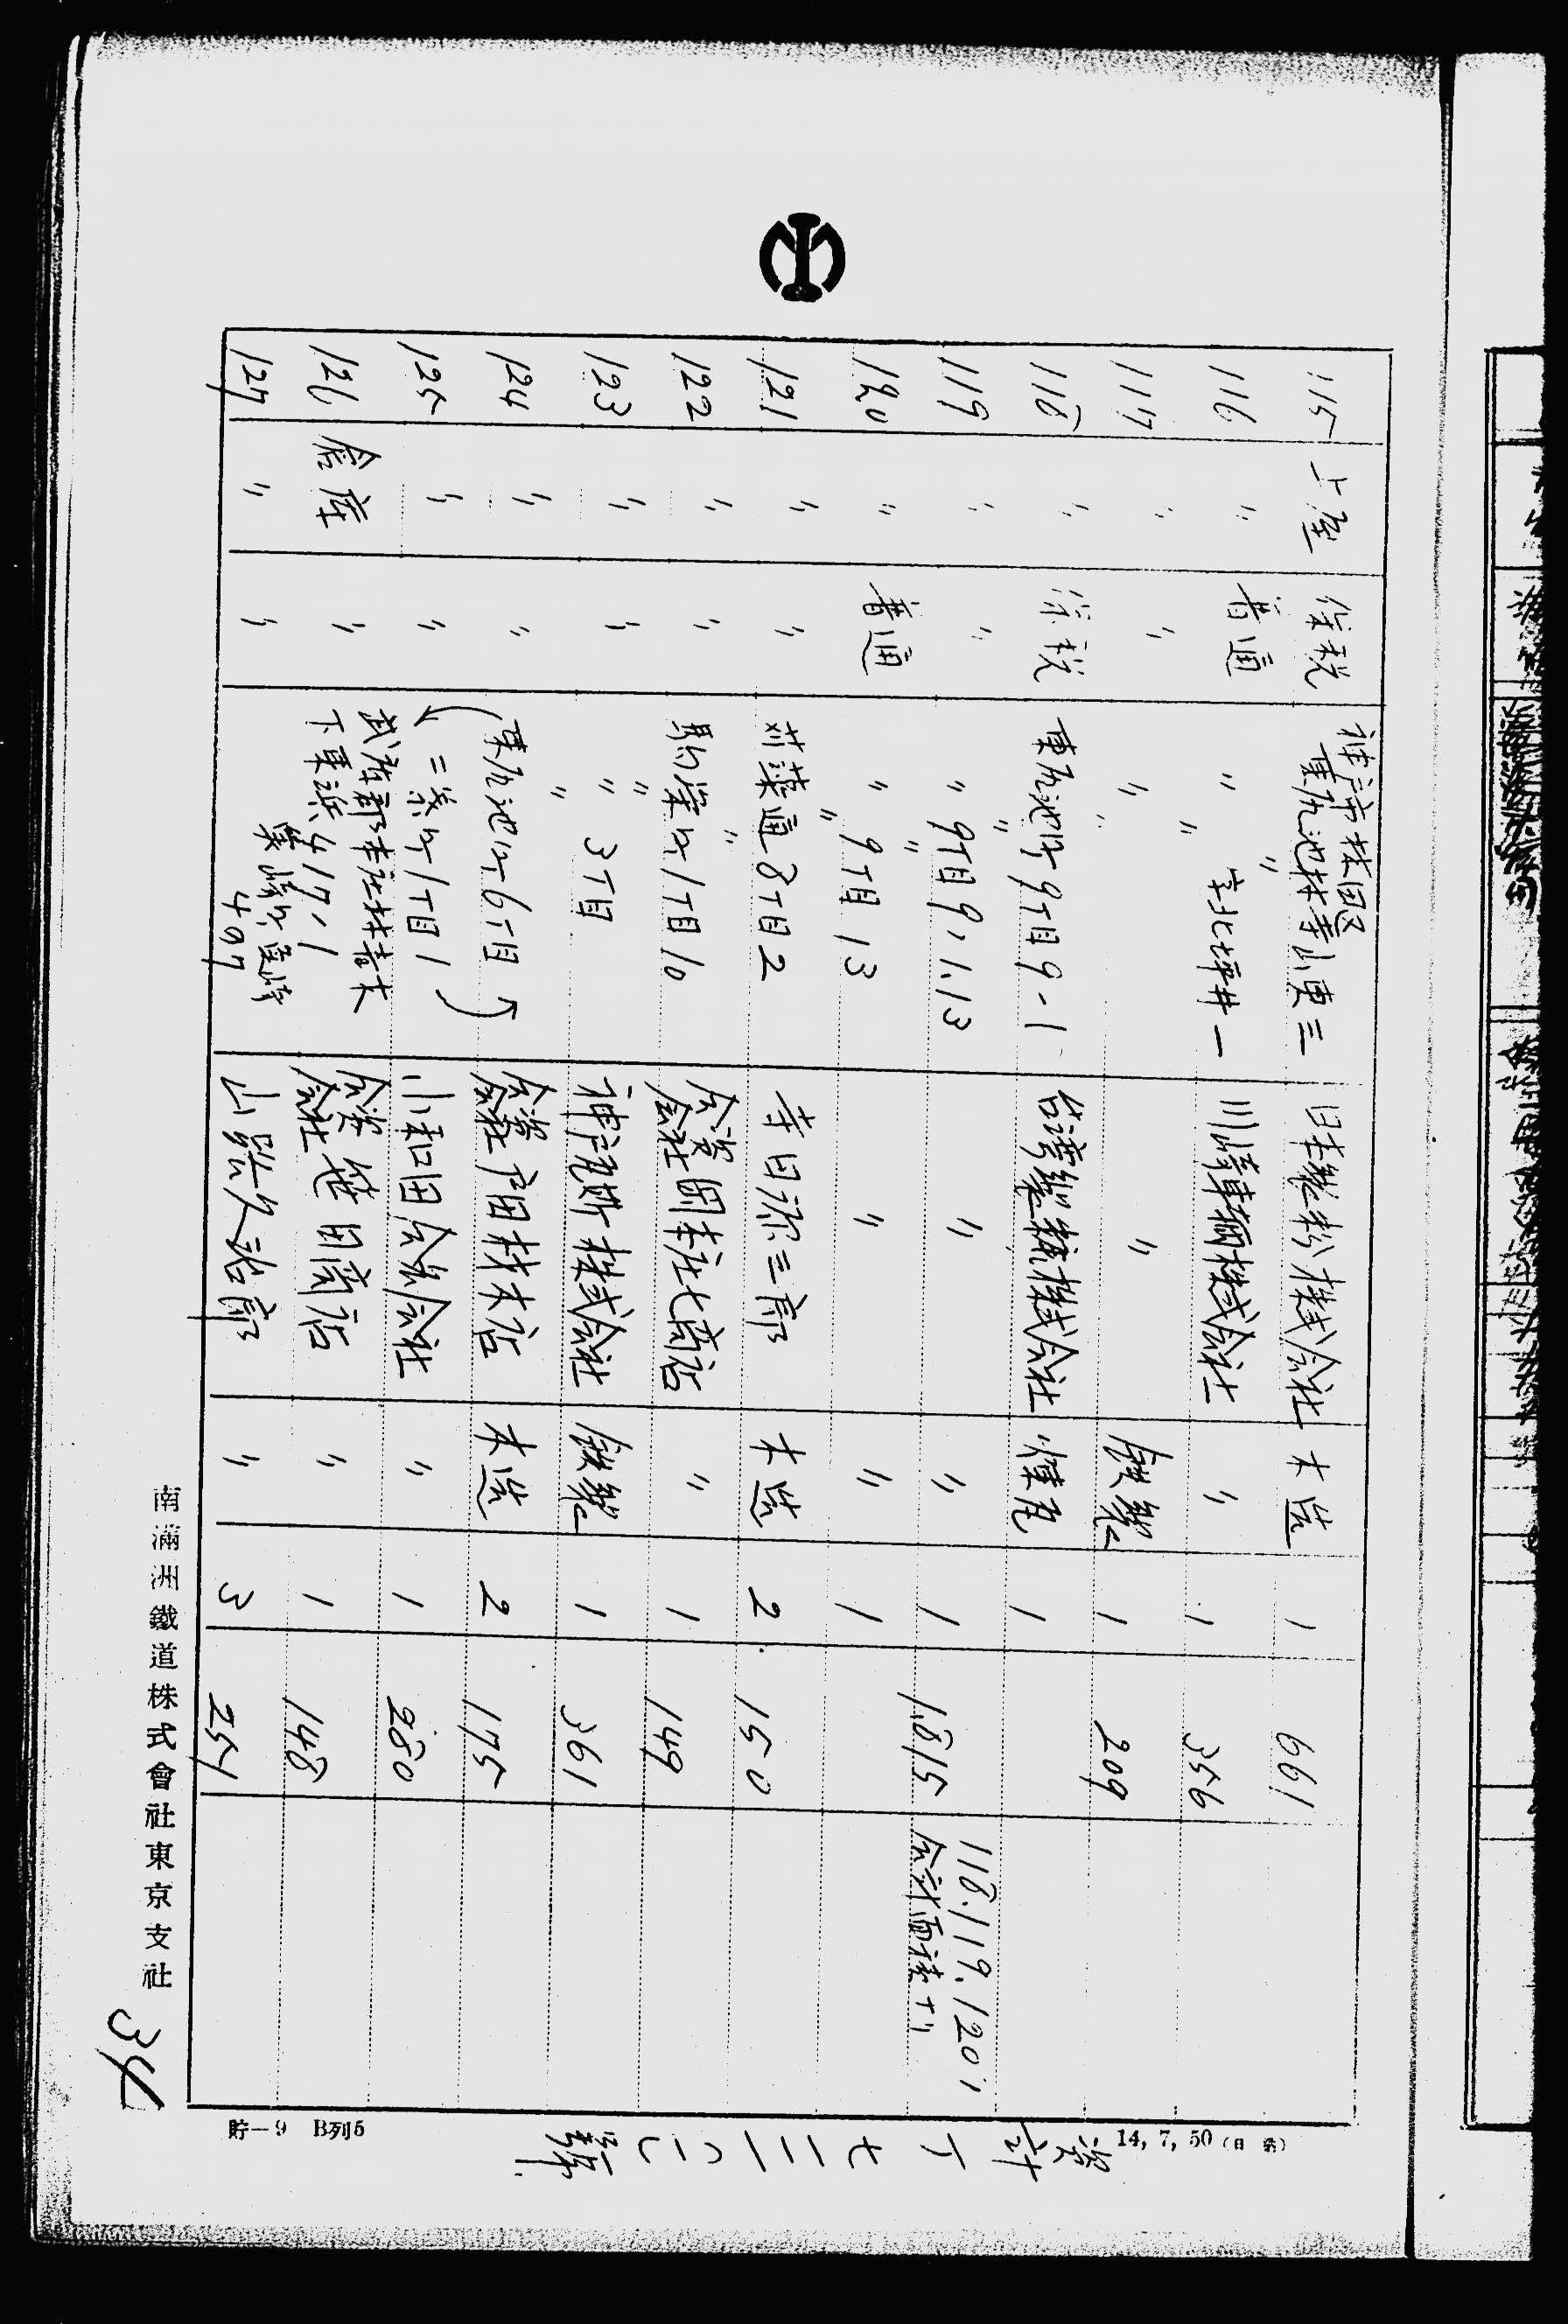 115 上屋 保税 神戸市林田区東尻池村字小東三 日本製粉株式会社 木造 1 661
116 〃 普通 〃 〃 字北坪井一 川崎車輛株式会社 〃 1 356
117 〃 〃 〃 〃 〃 鉄製 1 209
118 〃 保税 東尻池町9丁目9-1 台湾製糖株式会社 煉瓦 1
119 〃 〃 〃 〃 9丁目9,1.13 〃 〃 1 1.815 118.119.120ハ合計面積ナリ
120 〃 普通 〃 〃 9丁目13 〃 〃 1
121 〃 〃 苅藻通8丁目2 寺田源三郎 木造 2 150
122 〃 〃 〃 町1丁目10 合資会社岡本庄七商店 〃 1 149
123 〃 〃 〃 〃 3丁目 株式会社 鉄製 1 361
124 〃 〃 〃 東尻池町6丁目 合資会社戸田材木店 木造 2 175
125 〃 〃 二葉町1丁目1 小和田合名会社 〃 1 280
126 倉庫 〃 武庫郡本庄村青木下東浜417ノ1 合資会社笹田商店 〃 1 148
127 〃 〃 4の7 山 久治郎 〃 3 254
南滿洲鐵道株式會社東京支社
34
貯―9 B列5
14, 7, 50
資計 丁 七三一(二) 號